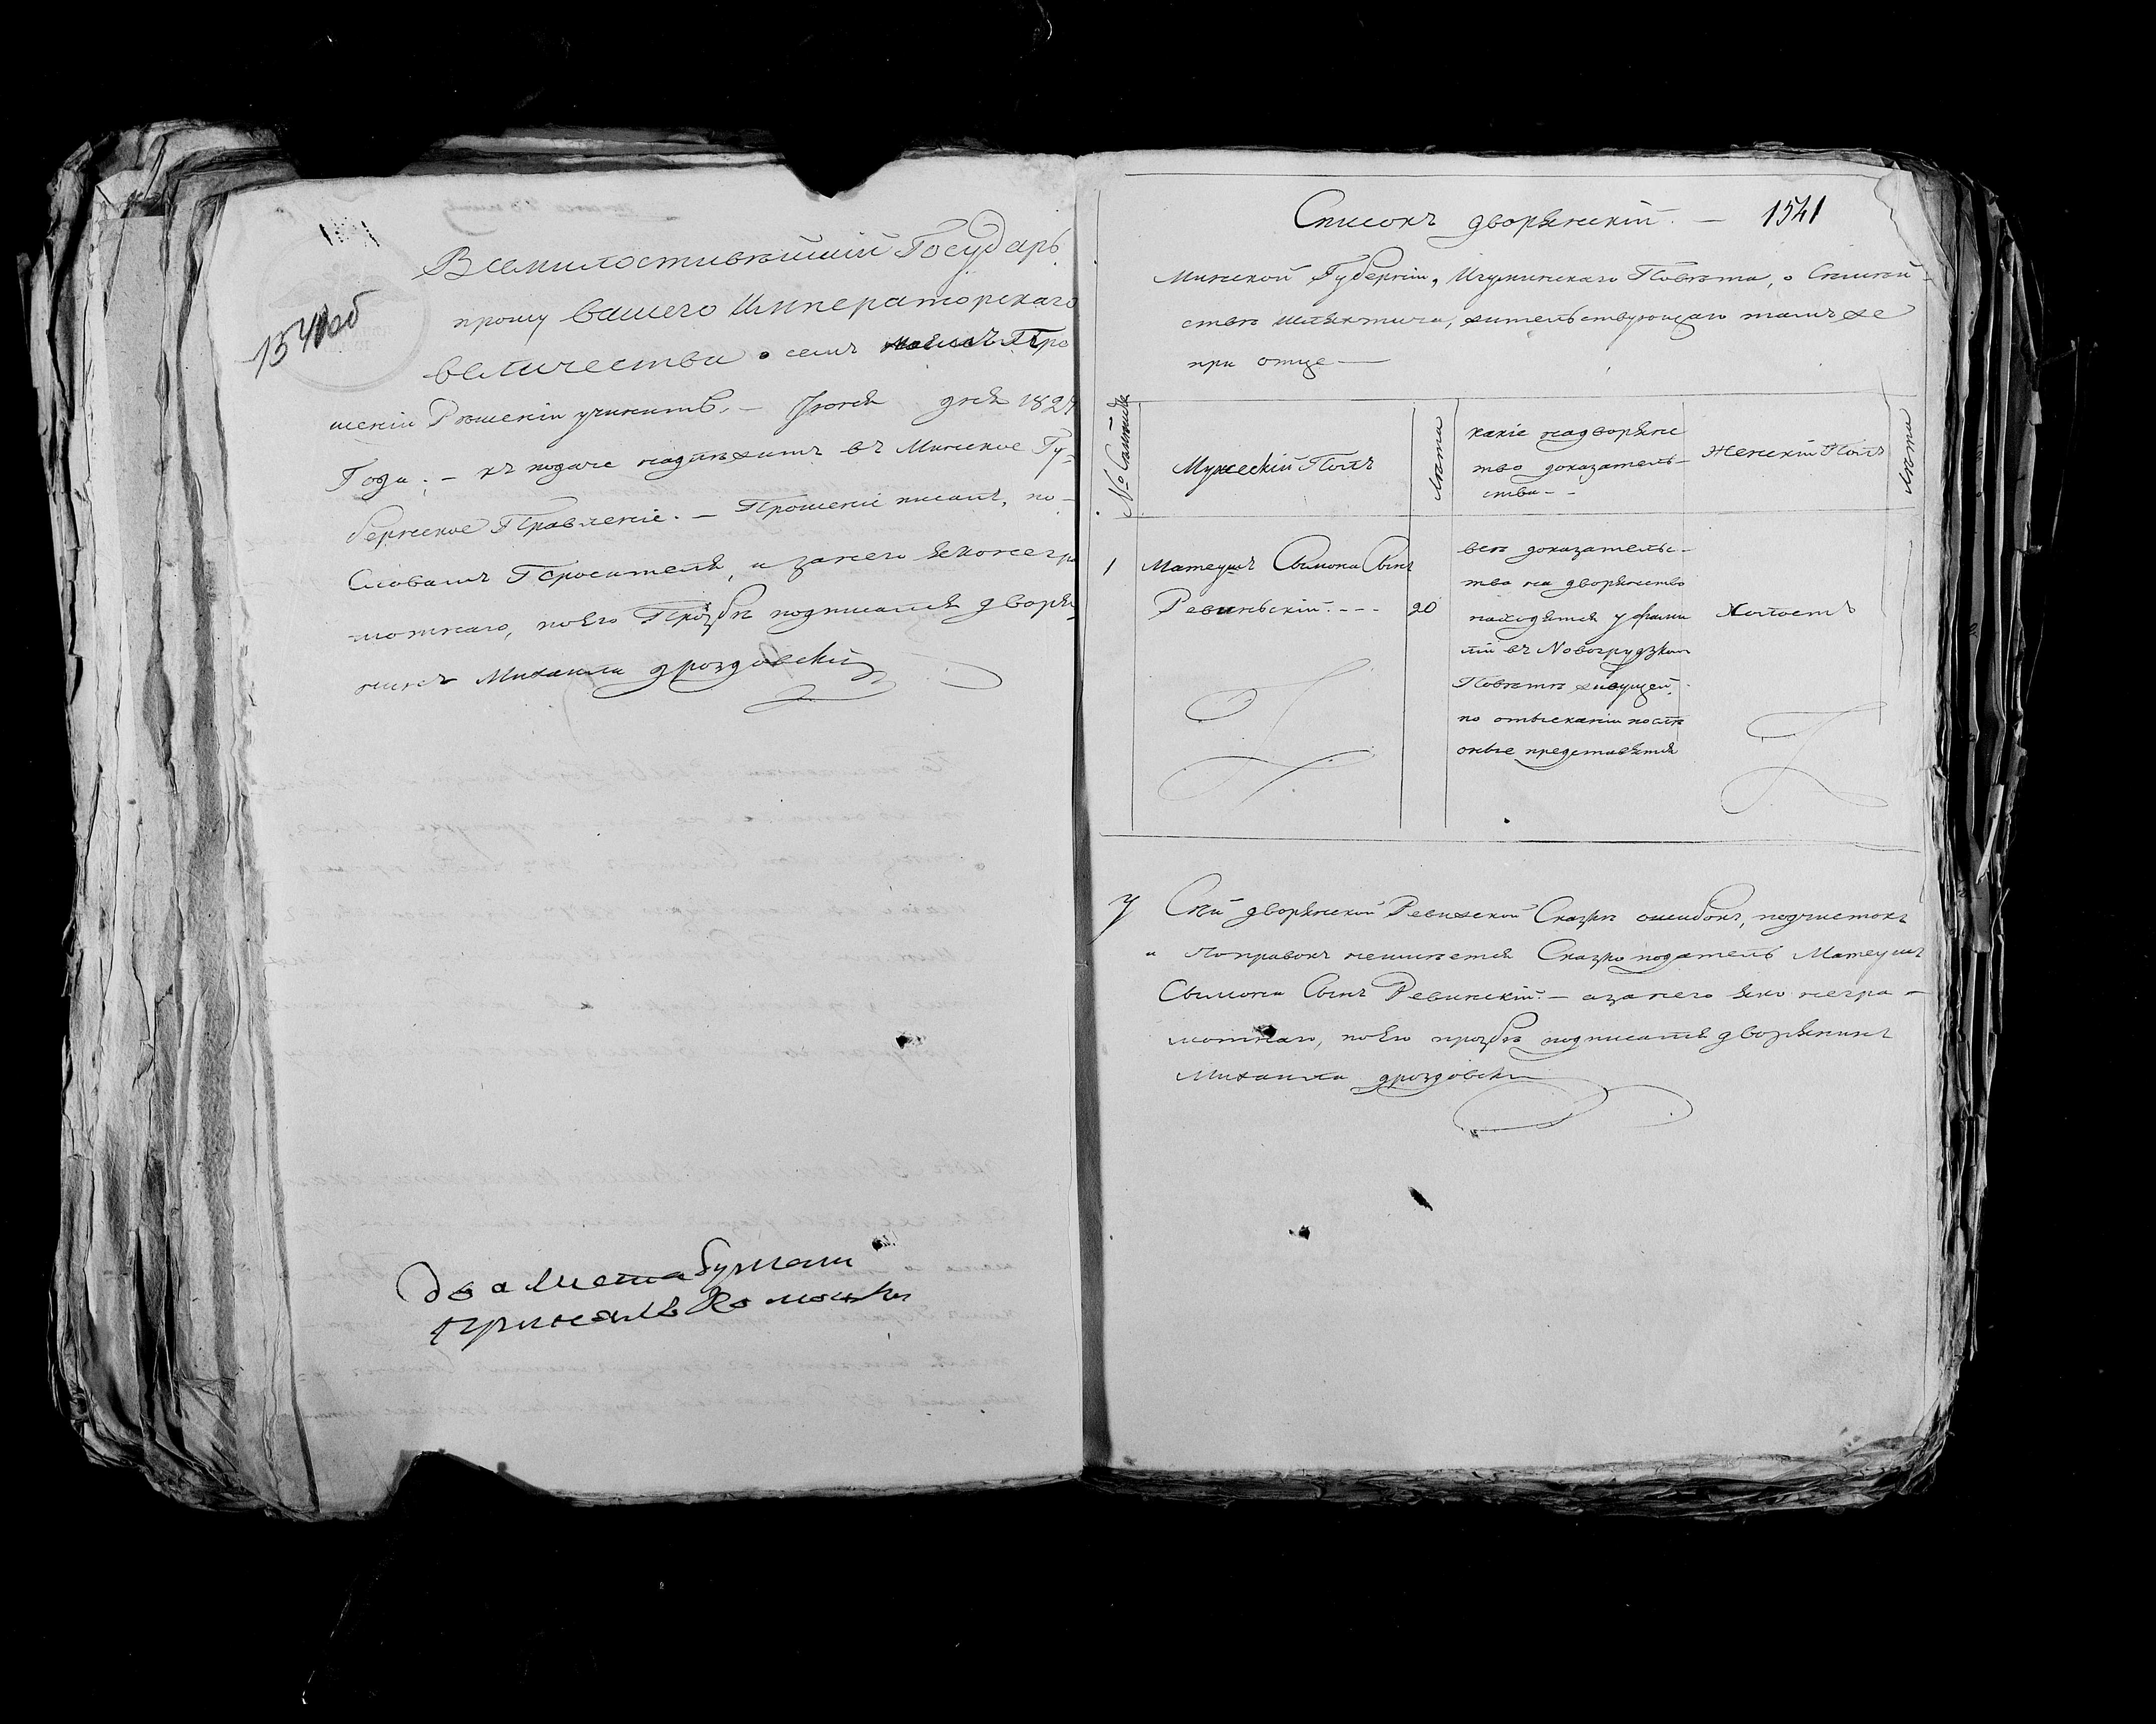 Всемилостивѣйшій Государь
прошу вашего Императорскаго
величества о семъ моемъ Про
шеніи Рѣшеніи учинить. — Іюня дня 182
Года. — къ подаче надлѣжитъ въ Минское Гу-
бернское Правленіе. — Прошеніе писалъ, по-
Словамъ Просителя, и занего яко негра
мотнаго, поего Прозбѣ подписался дворя
нинъ Михаила Дроздовскій
два листа бумаги
принялъ
Списокъ дворянскій. — 1541
Минской Губерніи, Игуминскаго Повѣта, о
шляхтича, жительствующаго тамъ же
при отце —
№
Мужескій Полъ
Лѣта
какіе надворянс
тво доказатель-
ства - -
Женскій Полъ
Лѣта
1 Матеушъ Сымона Сынъ
Ревинскій. - - - 20
всѣ доказательс-
тва на дворянство
находятся у фами
ліи въ Новогрудзком
Повѣтѣ живущей.
по отысканіи
оные представятся
Холостъ
Сей дворянской Ревизской Сказкѣ ошибокъ, подчистокъ
и поправокъ неимѣется Сказко податель Матеушъ
Сымона Сынъ Ревинскій. — азанего яко негра-
мотнаго, поего прозбѣ подписался дворянинъ
Михаила Дроздовскій